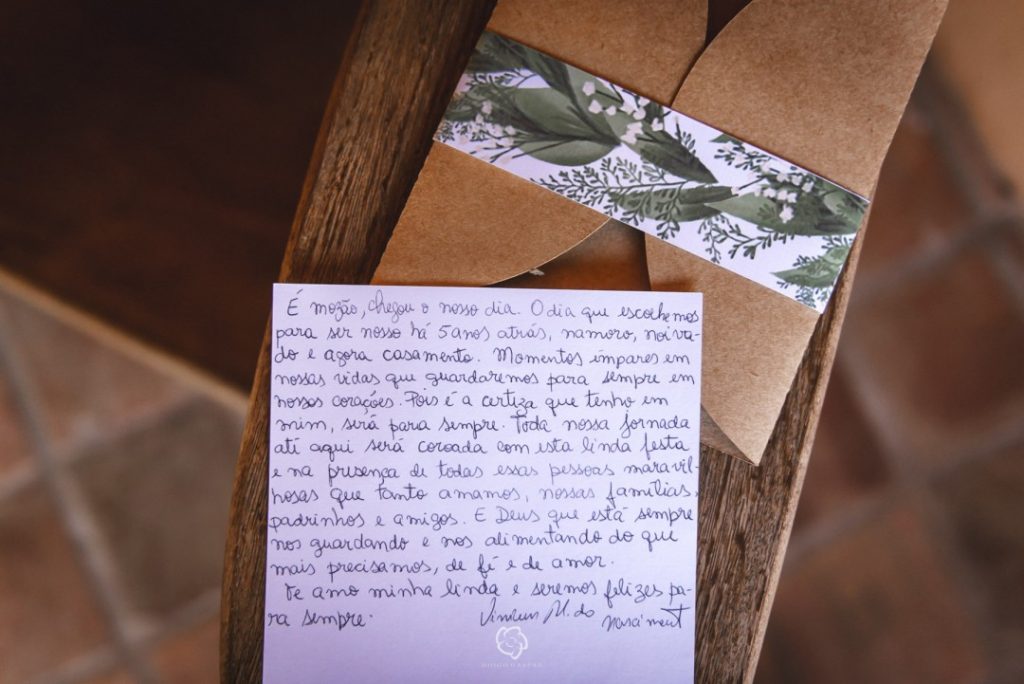 É mozão, chegou o nosso dia. O dia que escolhemos
para ser nosso há 5 anos atrás, namoro, noiva-
do e agora casamento. Momentos ímpares em
nossas vidas que guardaremos para sempre em
nossos corações. Pois é a certeza que tenho em
mim, será para sempre. Toda nossa jornada
até aqui será coroada com esta linda festa
e na presença de todas essas pessoas maravil-
hosas que tanto amamos, nossas famílias,
padrinhos e amigos. E Deus que está sempre
nos guardando e nos alimentando do que
mais precisamos, de fé e de amor.
Te amo minha linda e seremos felizes pa-
ra sempre. M. do